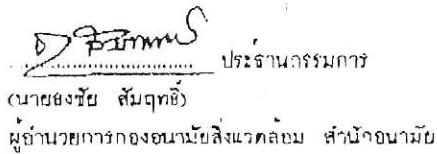 ประธานกรรมการ
(นายธงชัย สัมฤทธิ์)
ผู้อำนวยการกองอนามัยสิ่งแวดล้อม สำนักอนามัย